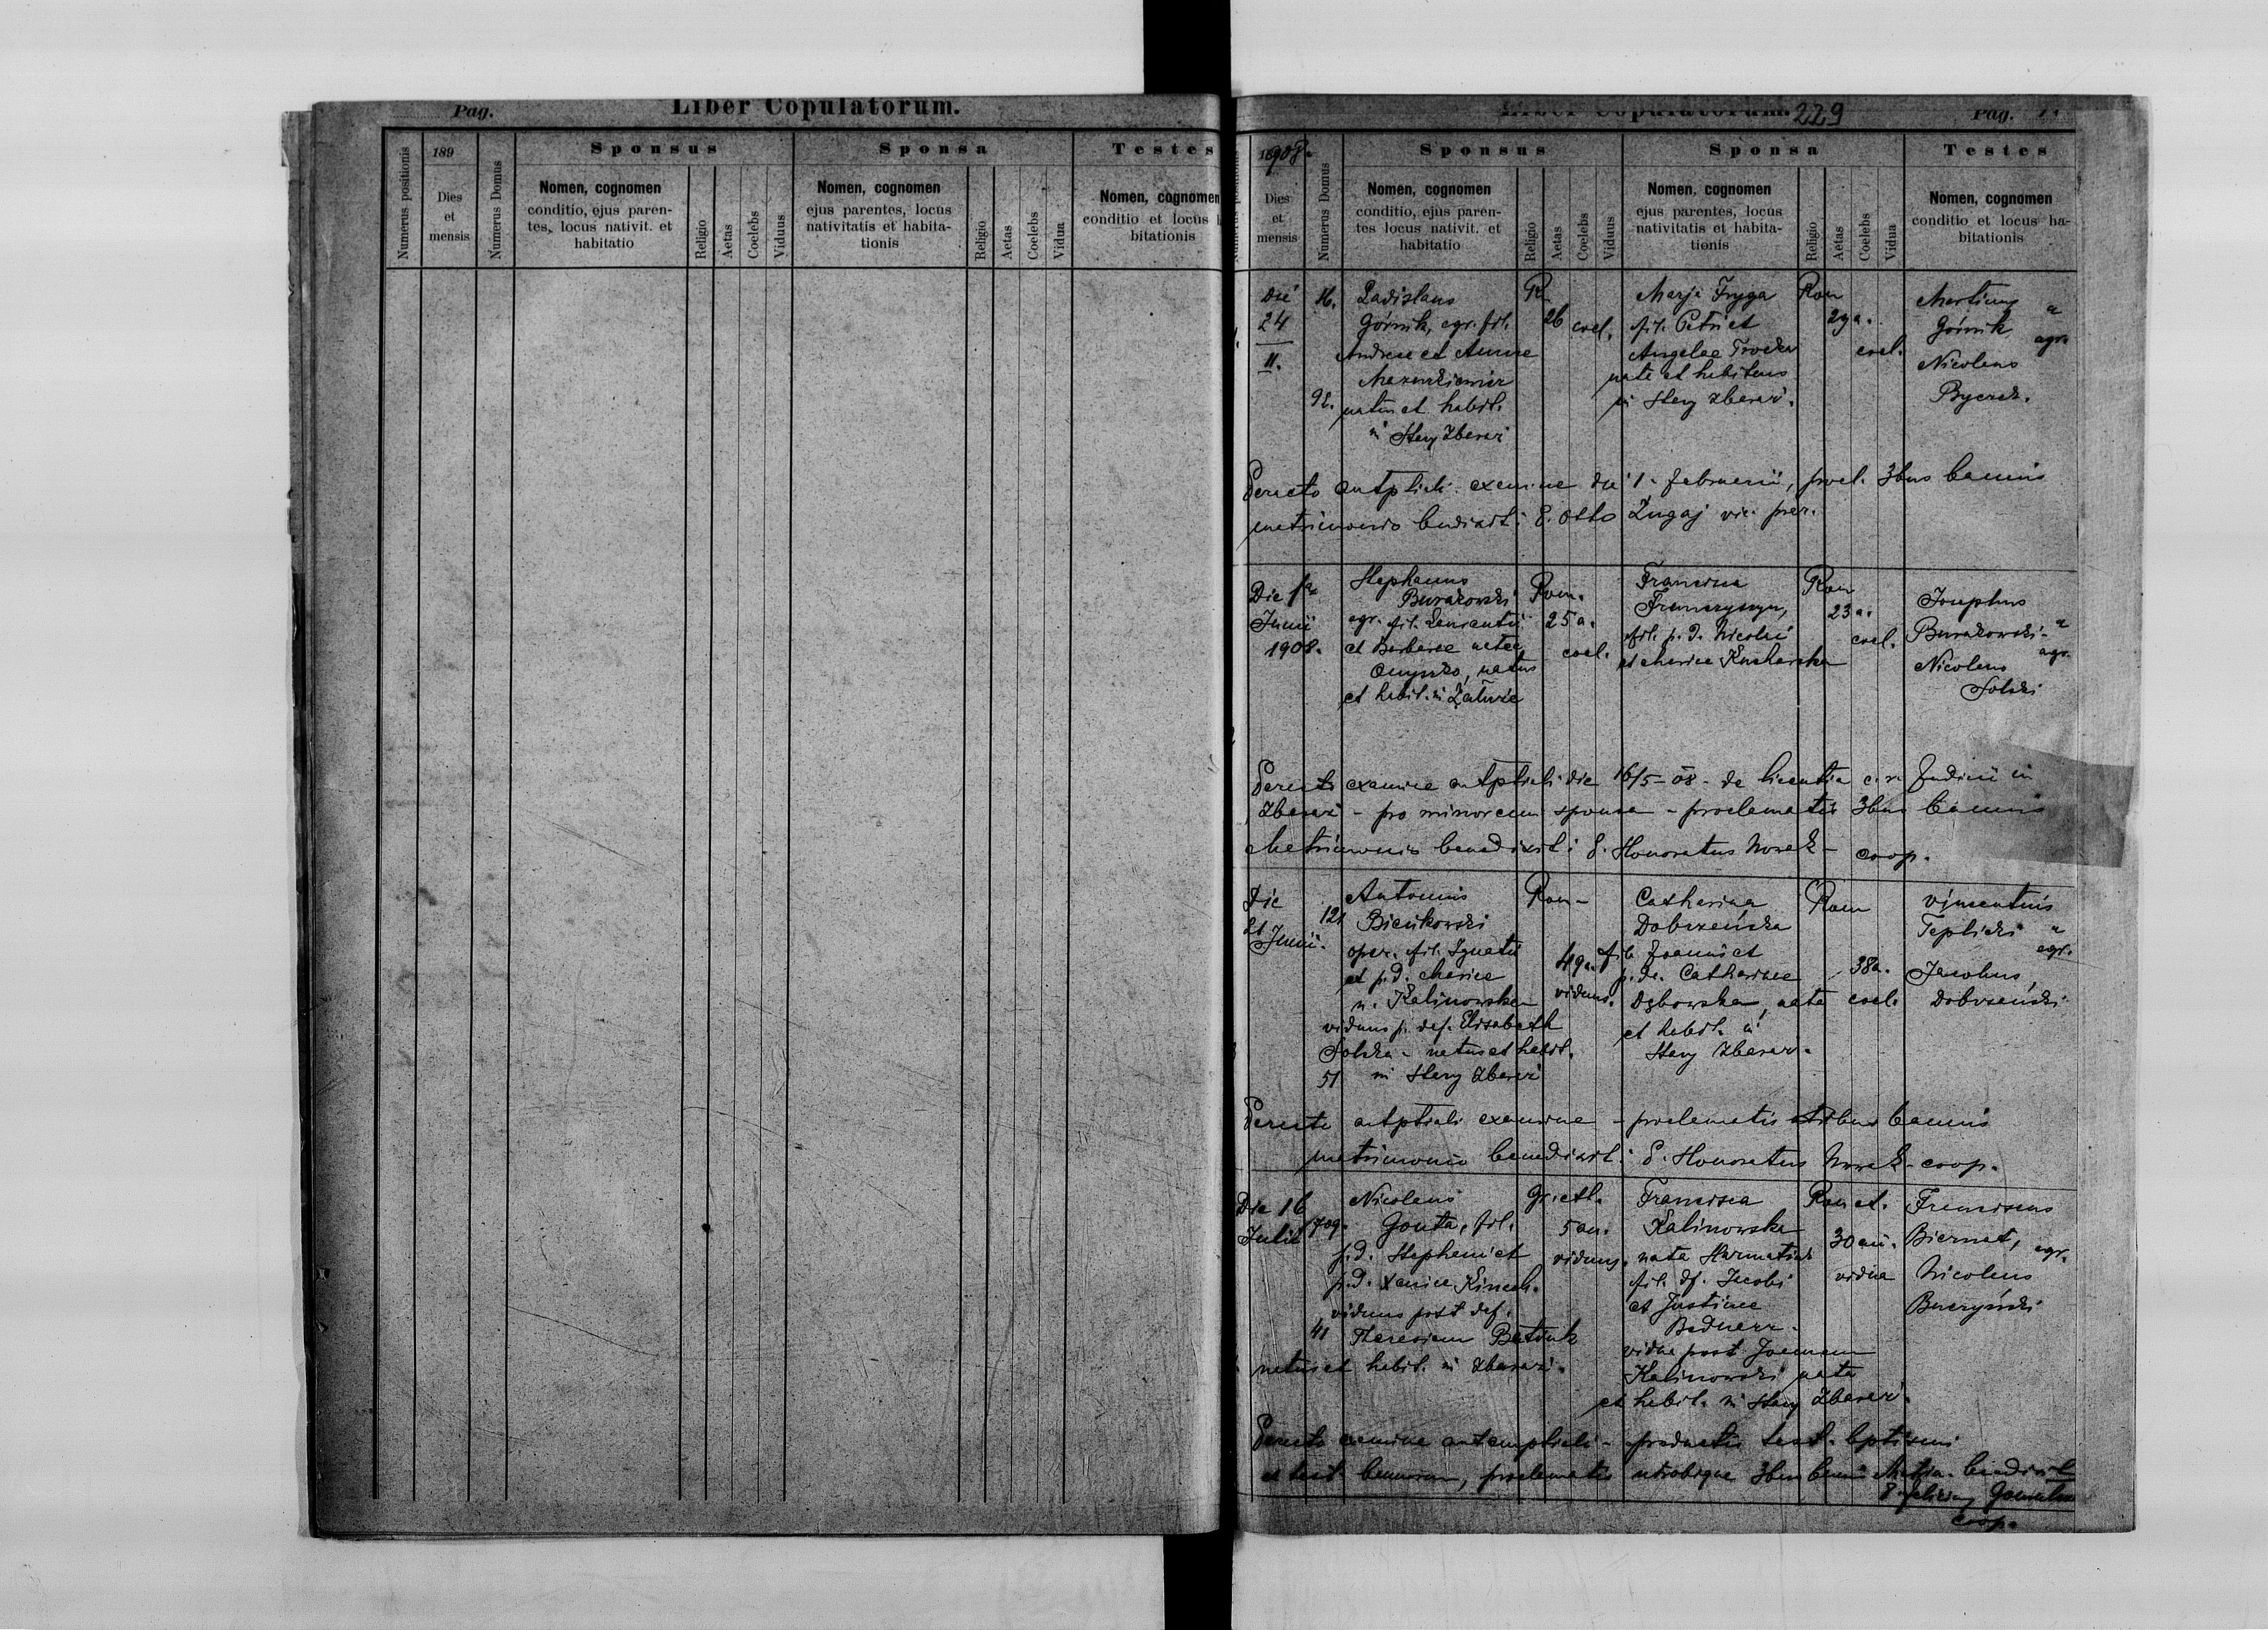 Pag.
Liber Copulatorum.
Numerus positionis
189
Dies
et
mensis
Numerus Domus
Sponsus
Nomen, cognomen
conditio, ejus paren-
tes, locus nativit. et
habitatio
Religio
Aetas
Coelebs
Viduus
Sponsa
Nomen, cognomen
ejus parentes, locus
nativitatis et habita-
tionis
Religio
Aetas
Coelebs
Vidua
Testes
Nomen, cognomen
conditio et locus
bitationis
Liber Copulatorum.
229
Pag.
908.
Dies
et
mensis
Numerus Domus
Sponsus
Nomen, cognomen
conditio, ejus paren-
tes locus nativit. et
habitatio
Religio
Aetas
Coelebs
Viduus
Sponsa
Nomen, cognomen
ejus parentes, locus
nativitatis et habita-
tionis
Religio
Aetas
Coelebs
Vidua
Testes
Nomen, cognomen
conditio et locus ha-
bitationis
Die
24
II.
16.
92.
Ladislaus
Górnik, agr. fil.
Andreae et Annae
natus et habit.
in Stary Zbaraż
26
coel.
Marja Fryga
fil. Petri et
Angelae
nata et habitans
in Stary Zbaraż.
Rom
29 a.
coel.
Martinus
Górnik agr.
Nicolaus
Byczek.
Peracto antptiali examine die 1. februarii, procl. 3bus bannis
matrimonio bndixit: P. Otto Zugaj vic. par.
Die 1a
Junii
1908.
Stephanus
Burakowski
agr. fil. Laurentii
et Barbarae natae
natus
et habit. in Załuże
Rom.
25 a.
coel.
Francisca
Franczyszyn,
fil. p. d. Nicolai
et Mariae Kucharska
Rom
23 a.
coel.
Josephus
Burakowski
agr.
Nicolaus
Solski
Peracto examine antptiali die 16/5-08 - de licentia c. r. Judicii in
Zbaraż - pro minorenni sponsa - proclamatis 3bus bannis
Matrimonio benedixit: P. Honoratus Norek - coop.
Die
21
Junii.
121
51
Antonius
Bieńkowski
oper. fil. Ignatii
et p. d. Mariae
n. Kalinowska
viduus p. def. Elisabeth
Solska - natus et habit.
in Stary Zbaraż
Rom -
49 a.
viduus.
Catharina
Dobrzeńska
fil. Joannis et
p. d. Catharinae
Dąbowska, nata
et habit. in
Stary Zbaraż.
Rom
38 a.
coel.
Vincentius
Teplicki
agr.
Jacobus
Dobrzeński
Peracto antptiali examine - proclamatis tribus bannis
matrimonio benedixit: P. Honoratus Norek - coop.
Die 16
Julii
709.
41
Nicolaus
Gonta, fil.
p. d. Stephani et
p. d. Xeniae Kinach.
viduus post def.
Theresiam
natus et habit. in Zbaraż.
Gr. cth.
5 an.
viduus.
Francisca
Kalinowska
nata
fil. df. Jacobi
et Justinae
Bednarz.
vidua post Joannem
Kalinowski nata
et habit. in Stary Zbaraż.
Rom ct.
30 an.
vidua
Franciscus
Biernat, agr.
Nicolaus
Buczyński
Peracto examine antenuptiali - productis test. bptismi
et test. bannorum, proclamatis utrobique 3bus bannis Matrim. bendixit
coop.